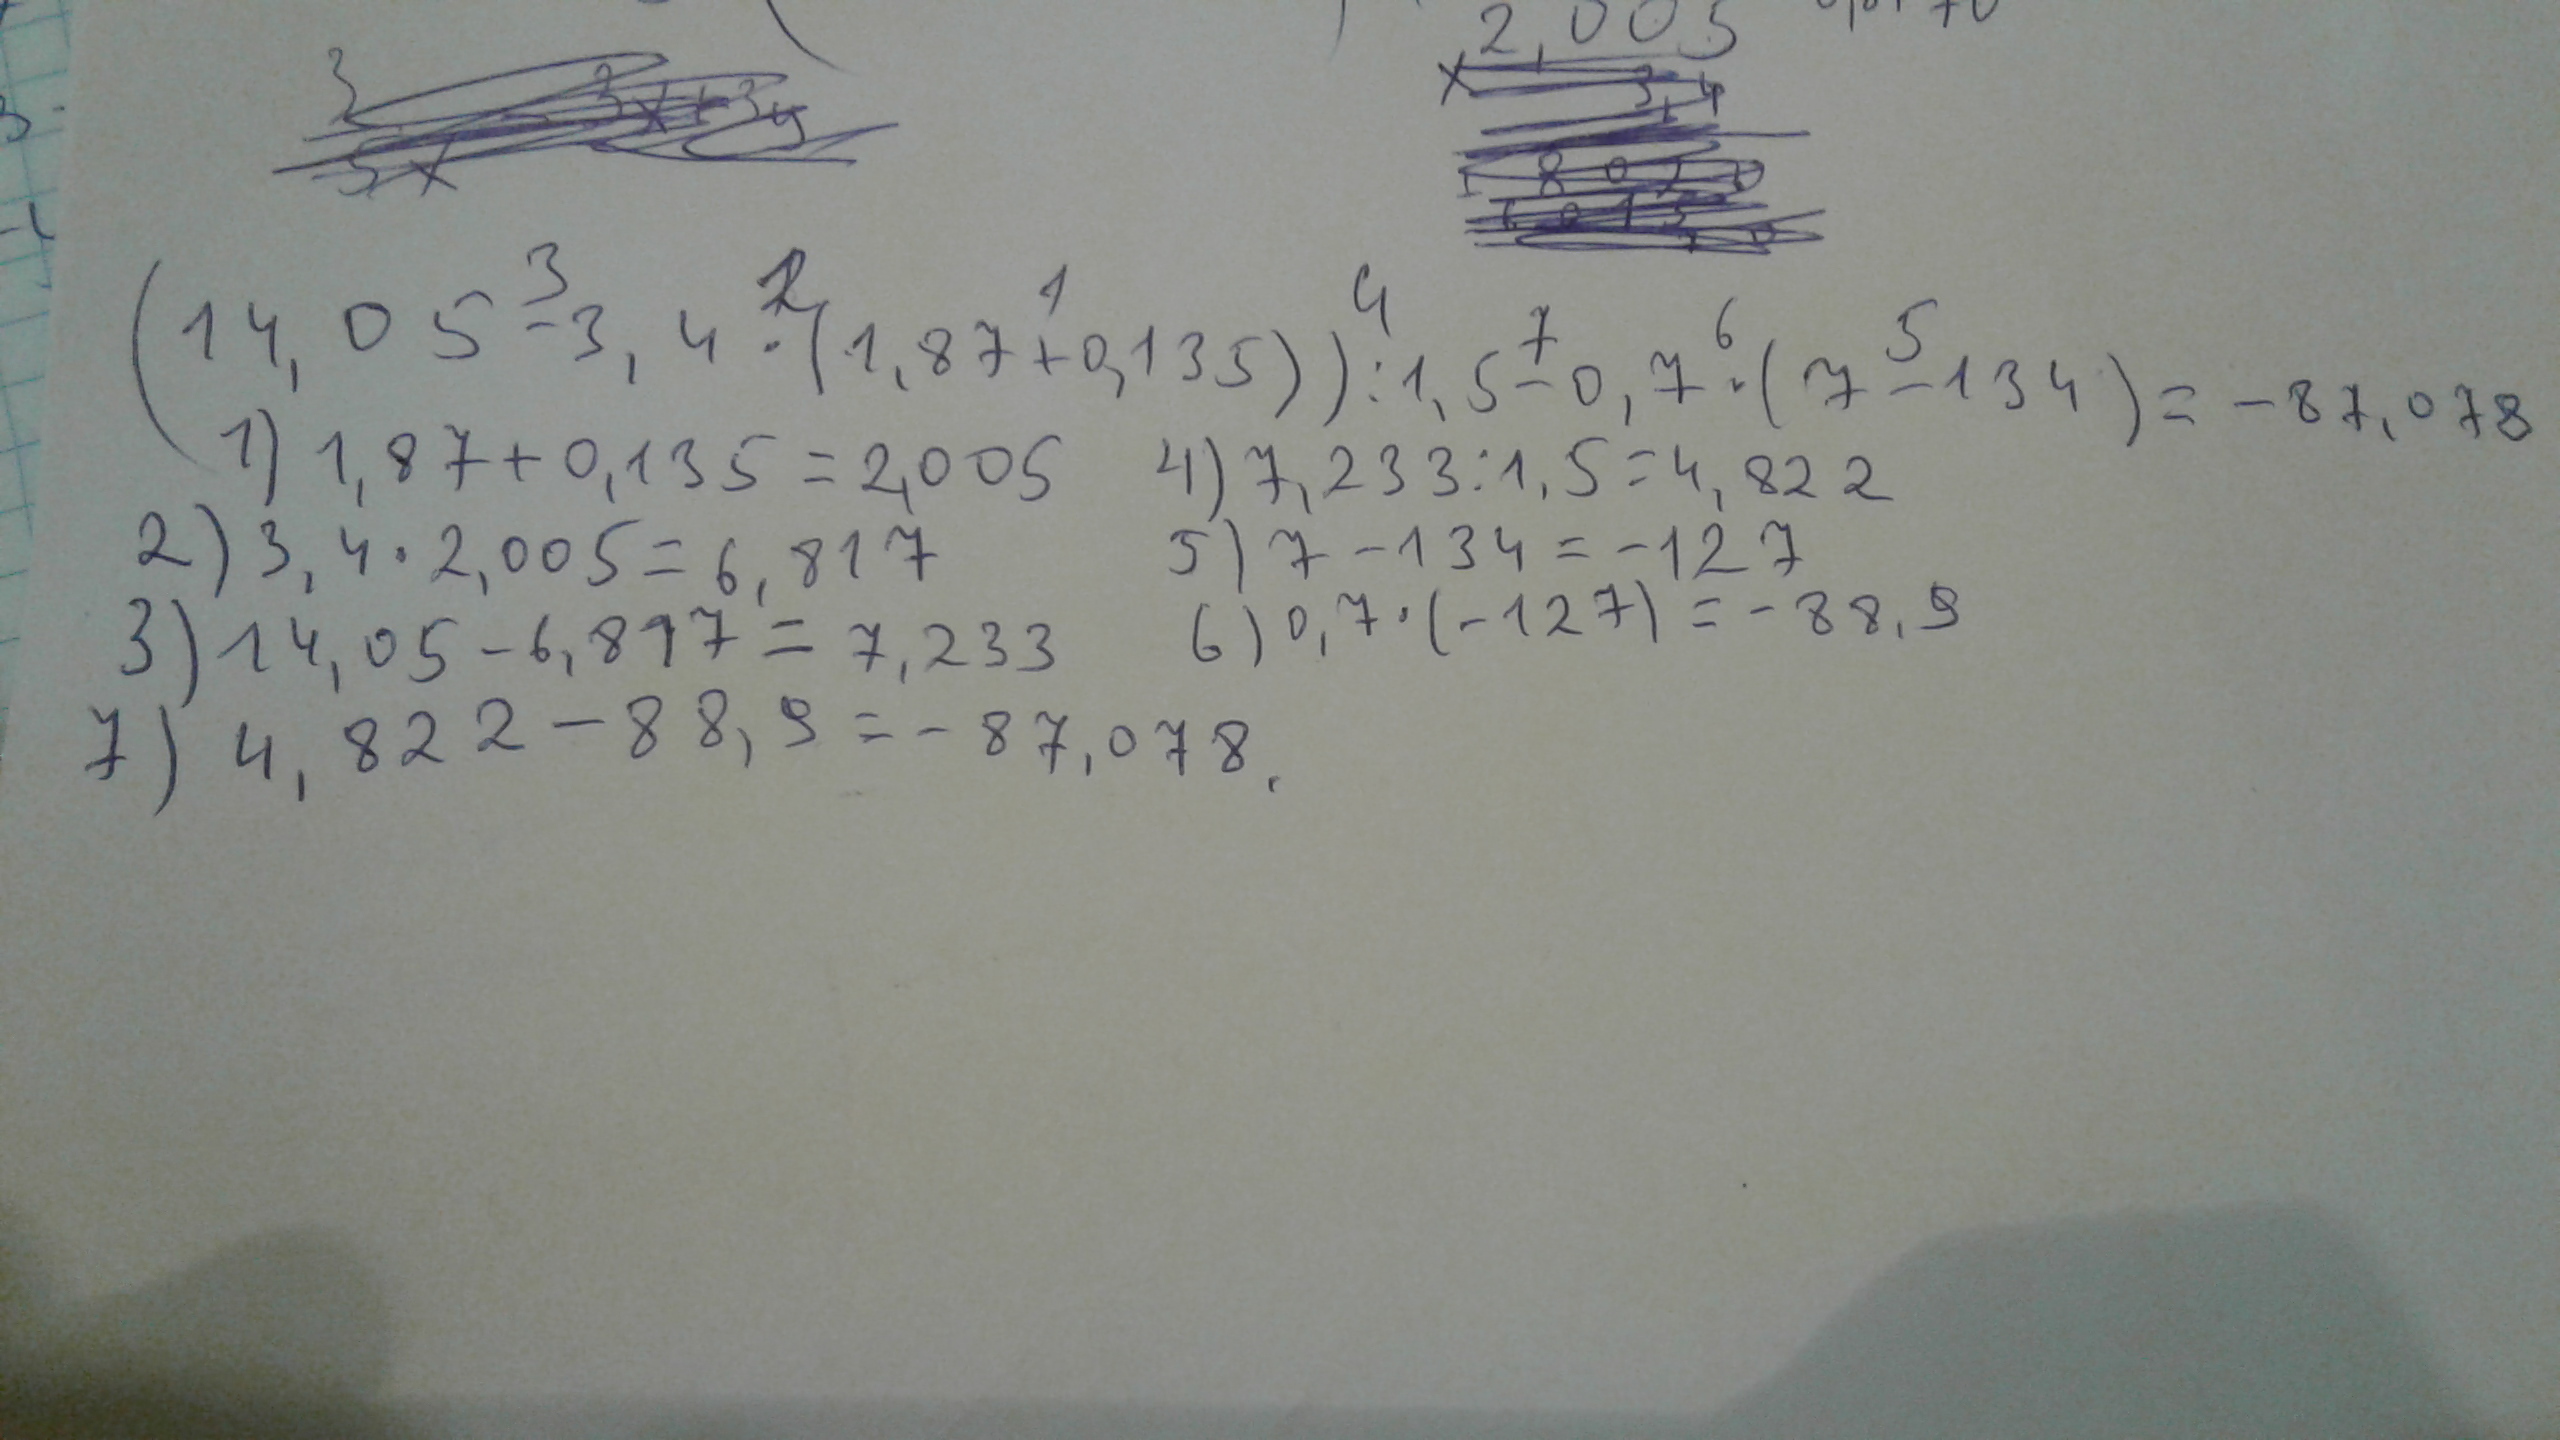 2,005
(14,05-3,4·(1,87+0,135)):1,5-0,7·(7-134)=-87,078
1) 1,87+0,135=2,005
2) 3,4·2,005=6,817
3) 14,05-6,817=7,233
4) 7,233:1,5=4,822
5) 7-134=-127
6) 0,7·(-127)=-88,9
7) 4,822-88,9=-87,078.